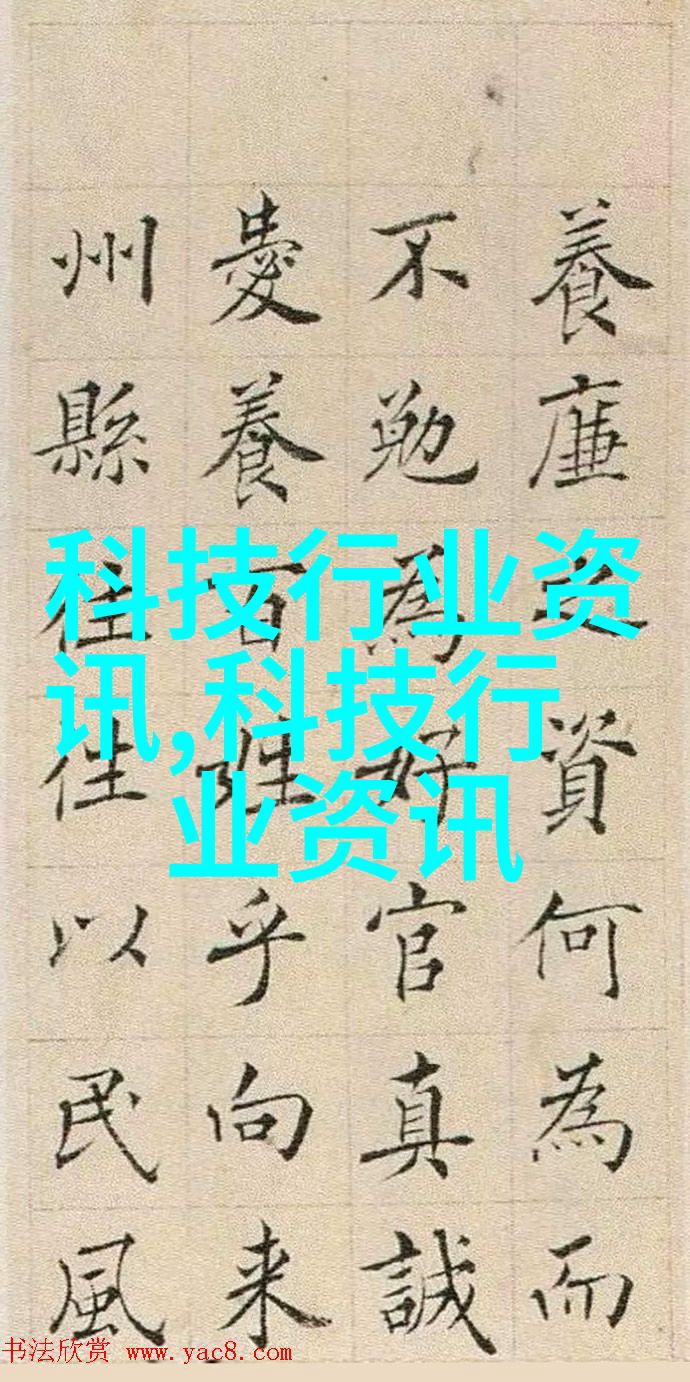 養廉之資何為而
不勉為好官真誠
愛養百姓乎向来
州縣往往以民風
科技行业资
讯,科技行
业资讯
书法欣赏 www.yac8.com